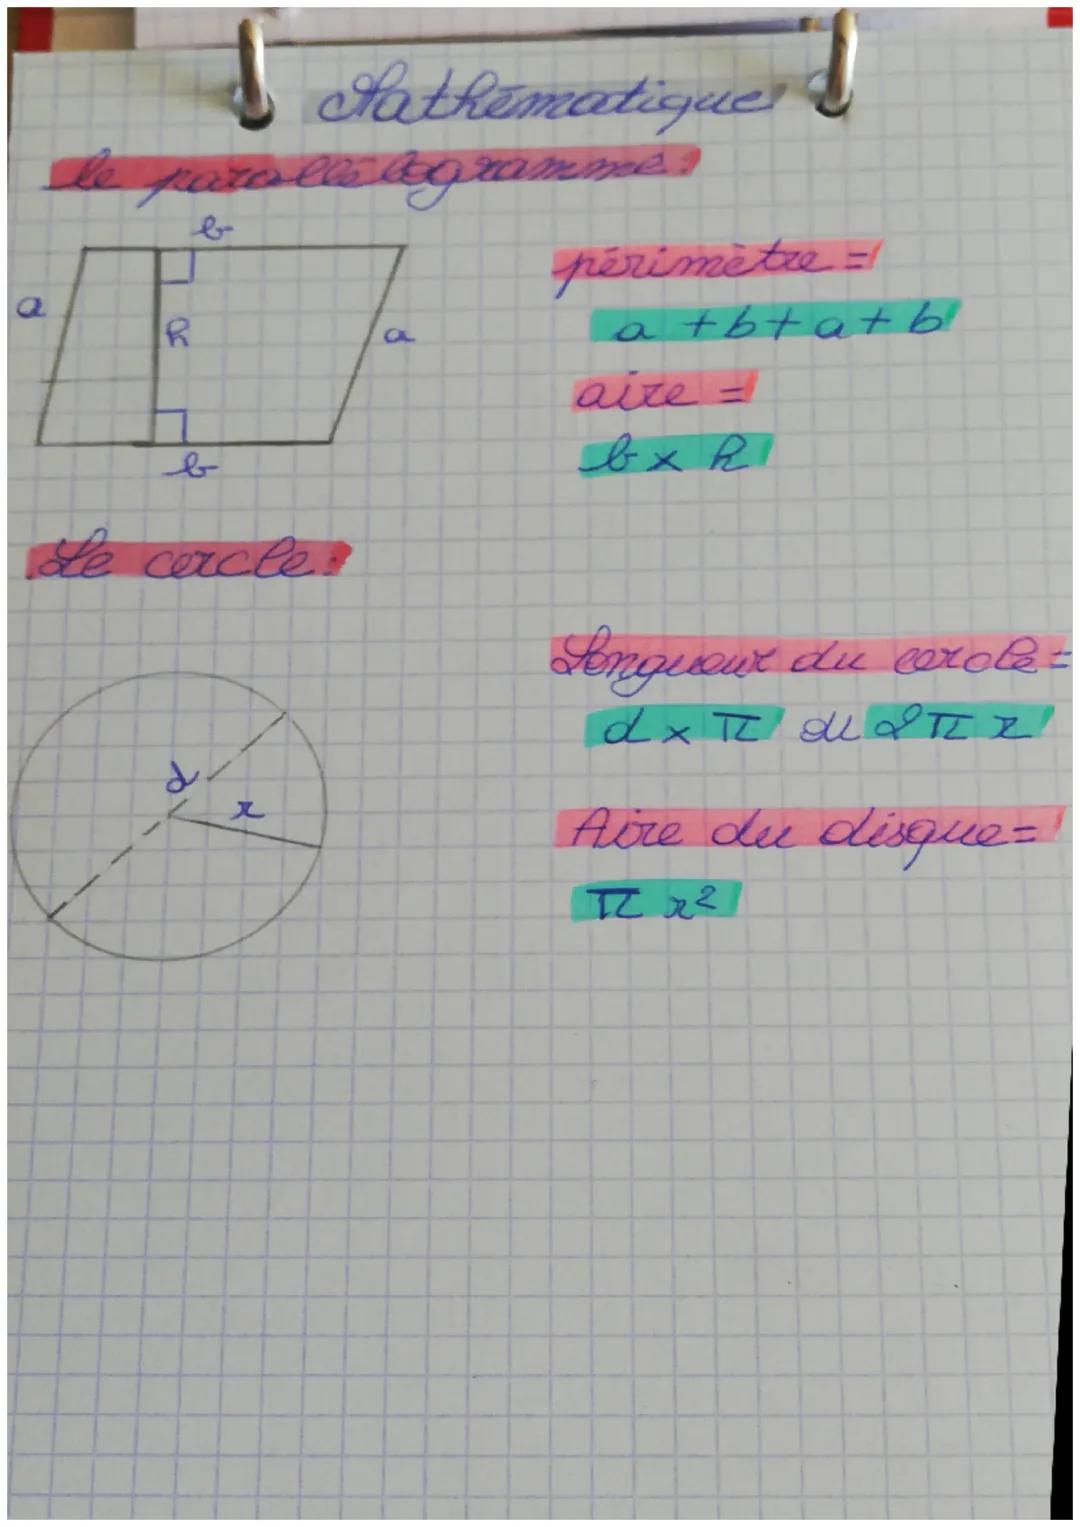 Mathématique
le parallélogramme:
b
a
h
a
b
périmètre =
a + b + a + b
aire =
b x h
Le cercle:
d
r
Longueur du cercle =
d x π ou 2 π r
Aire du disque =
π r²